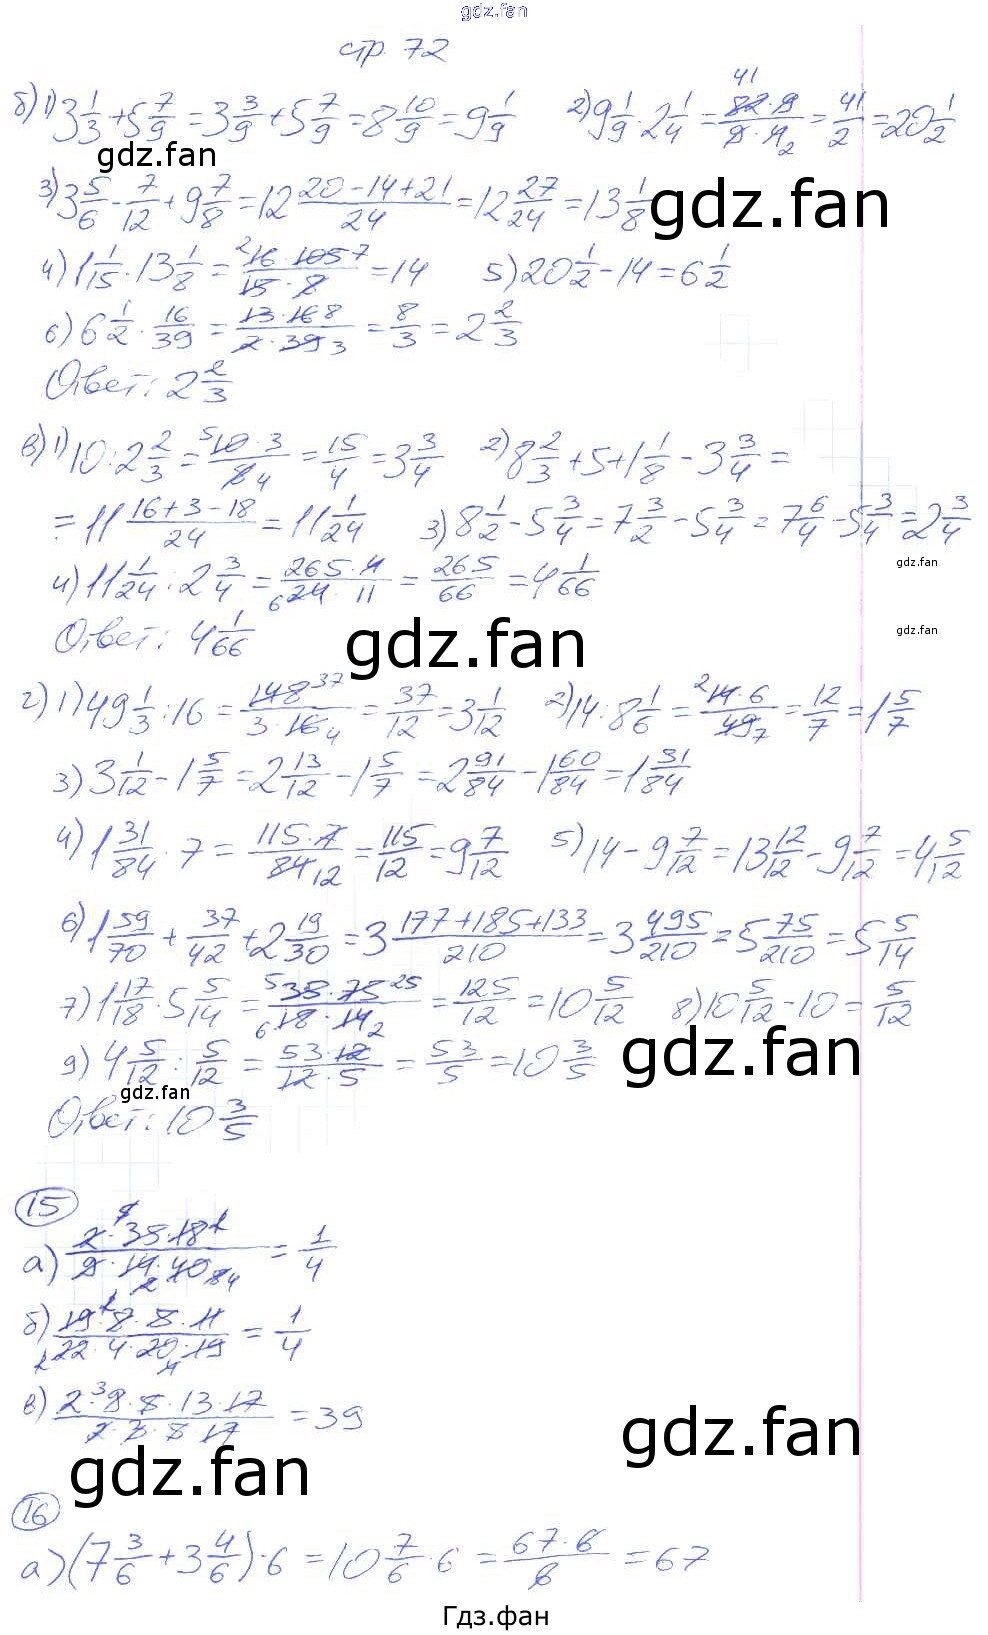 gdz.fan
стр. 72
б) 1) 3 1/3 + 5 7/9 = 3 3/9 + 5 7/9 = 8 10/9 = 9 1/9 2) 9 1/9 · 2 1/4 = 41 82 · 9 / 9 · 4 2 = 41/2 = 20 1/2
gdz.fan
3) 3 5/6 - 7/12 + 9 7/8 = 12 20-14+21/24 = 12 27/24 = 13 1/8
gdz.fan
4) 1 1/15 · 13 1/8 = 2 16 · 105 7 / 15 · 8 = 14 5) 20 1/2 - 14 = 6 1/2
6) 6 1/2 · 16/39 = 13 · 16 8 / 2 · 39 3 = 8/3 = 2 2/3
Ответ: 2 2/3
в) 1) 10 : 2 2/3 = 5 10 · 3 / 8 4 = 15/4 = 3 3/4 2) 8 2/3 + 5 + 1 1/8 - 3 3/4 =
= 11 16+3-18/24 = 11 1/24 3) 8 1/2 - 5 3/4 = 7 3/2 - 5 3/4 = 7 6/4 - 5 3/4 = 2 3/4
gdz.fan
4) 11 1/24 : 2 3/4 = 265 · 4 / 6 24 · 11 = 265/66 = 4 1/66
gdz.fan
Ответ: 4 1/66
gdz.fan
г) 1) 49 1/3 : 16 = 148 37 / 3 · 16 4 = 37/12 = 3 1/12 2) 14 : 8 1/6 = 2 14 · 6 / 49 7 = 12/7 = 1 5/7
3) 3 1/12 - 1 5/7 = 2 13/12 - 1 5/7 = 2 91/84 - 1 60/84 = 1 31/84
4) 1 31/84 · 7 = 115 · 7 / 84 12 = 115/12 = 9 7/12 5) 14 - 9 7/12 = 13 12/12 - 9 7/12 = 4 5/12
6) 1 59/70 + 37/42 + 2 19/30 = 3 177+185+133/210 = 3 495/210 = 5 75/210 = 5 5/14
7) 1 17/18 · 5 5/14 = 5 35 · 75 25 / 6 18 · 14 2 = 125/12 = 10 5/12 8) 10 5/12 - 10 = 5/12
gdz.fan
9) 4 5/12 : 5/12 = 53 · 12 / 12 · 5 = 53/5 = 10 3/5
gdz.fan
Ответ: 10 3/5
15
а) 2 · 35 · 18 / 9 · 14 · 40 = 1/4
б) 19 · 8 · 8 · 11 / 22 · 4 · 20 · 19 = 1/4
в) 2 · 3 9 · 8 · 13 · 17 / 2 · 3 · 8 · 17 = 39
gdz.fan
gdz.fan
16
а) (7 3/6 + 3 4/6) · 6 = 10 7/6 · 6 = 67 · 6 / 6 = 67
Гдз.фан